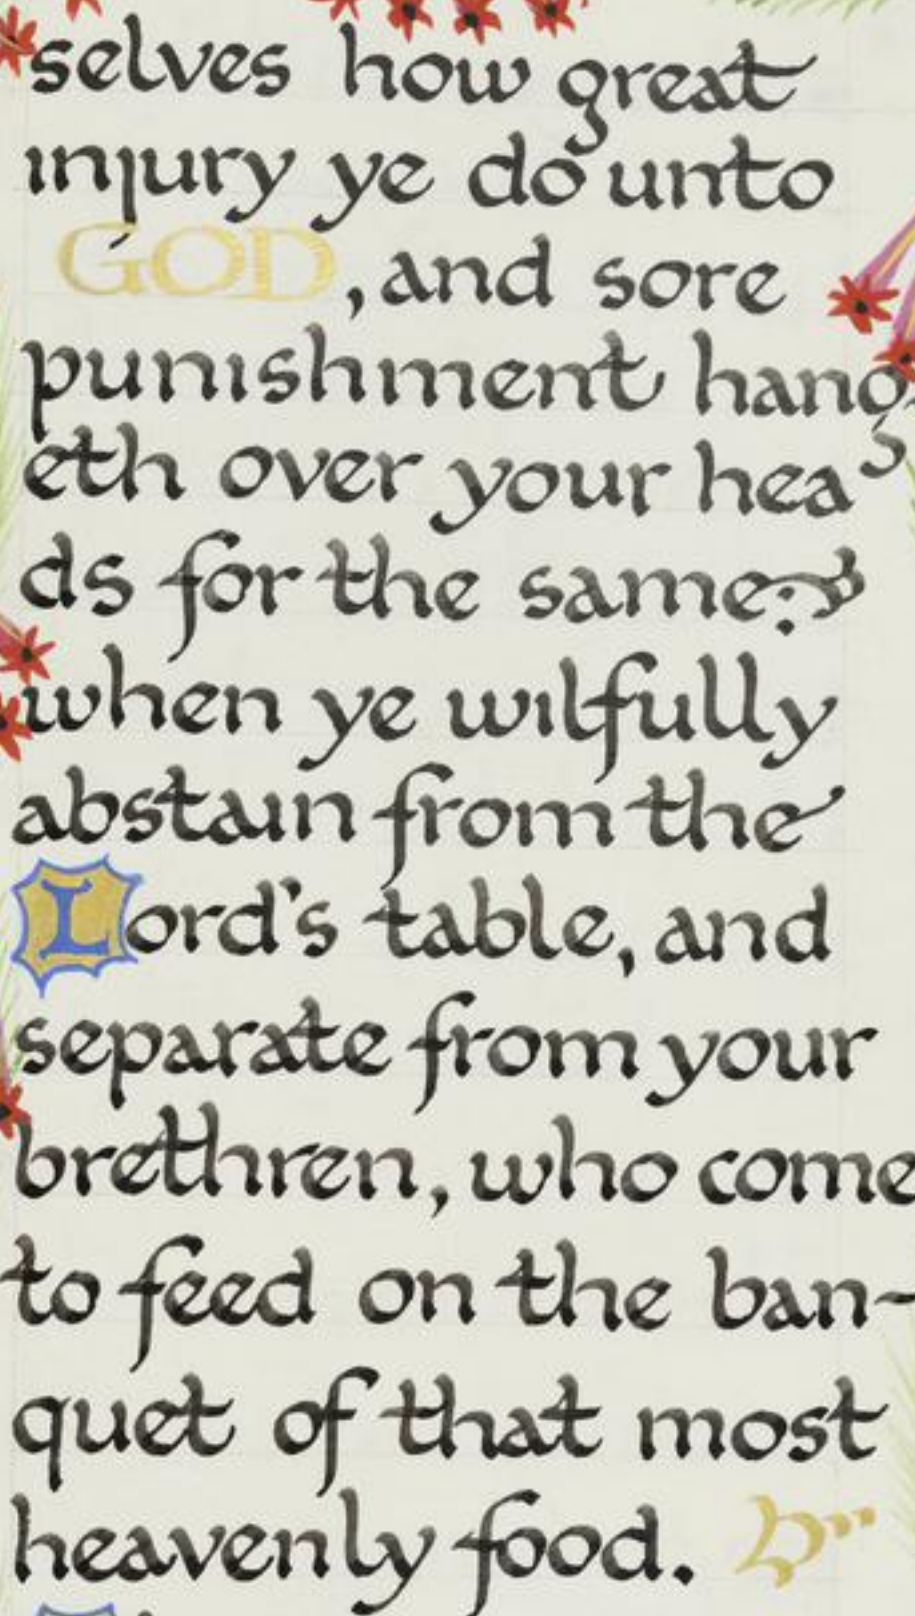 selves how great
injury ye do unto
GOD, and sore
punishment hang-
eth over your hea
ds for the same;
when ye wilfully
abstain from the
Lord's table, and
separate from your
brethren, who come
to feed on the ban-
quet of that most
heavenly food.